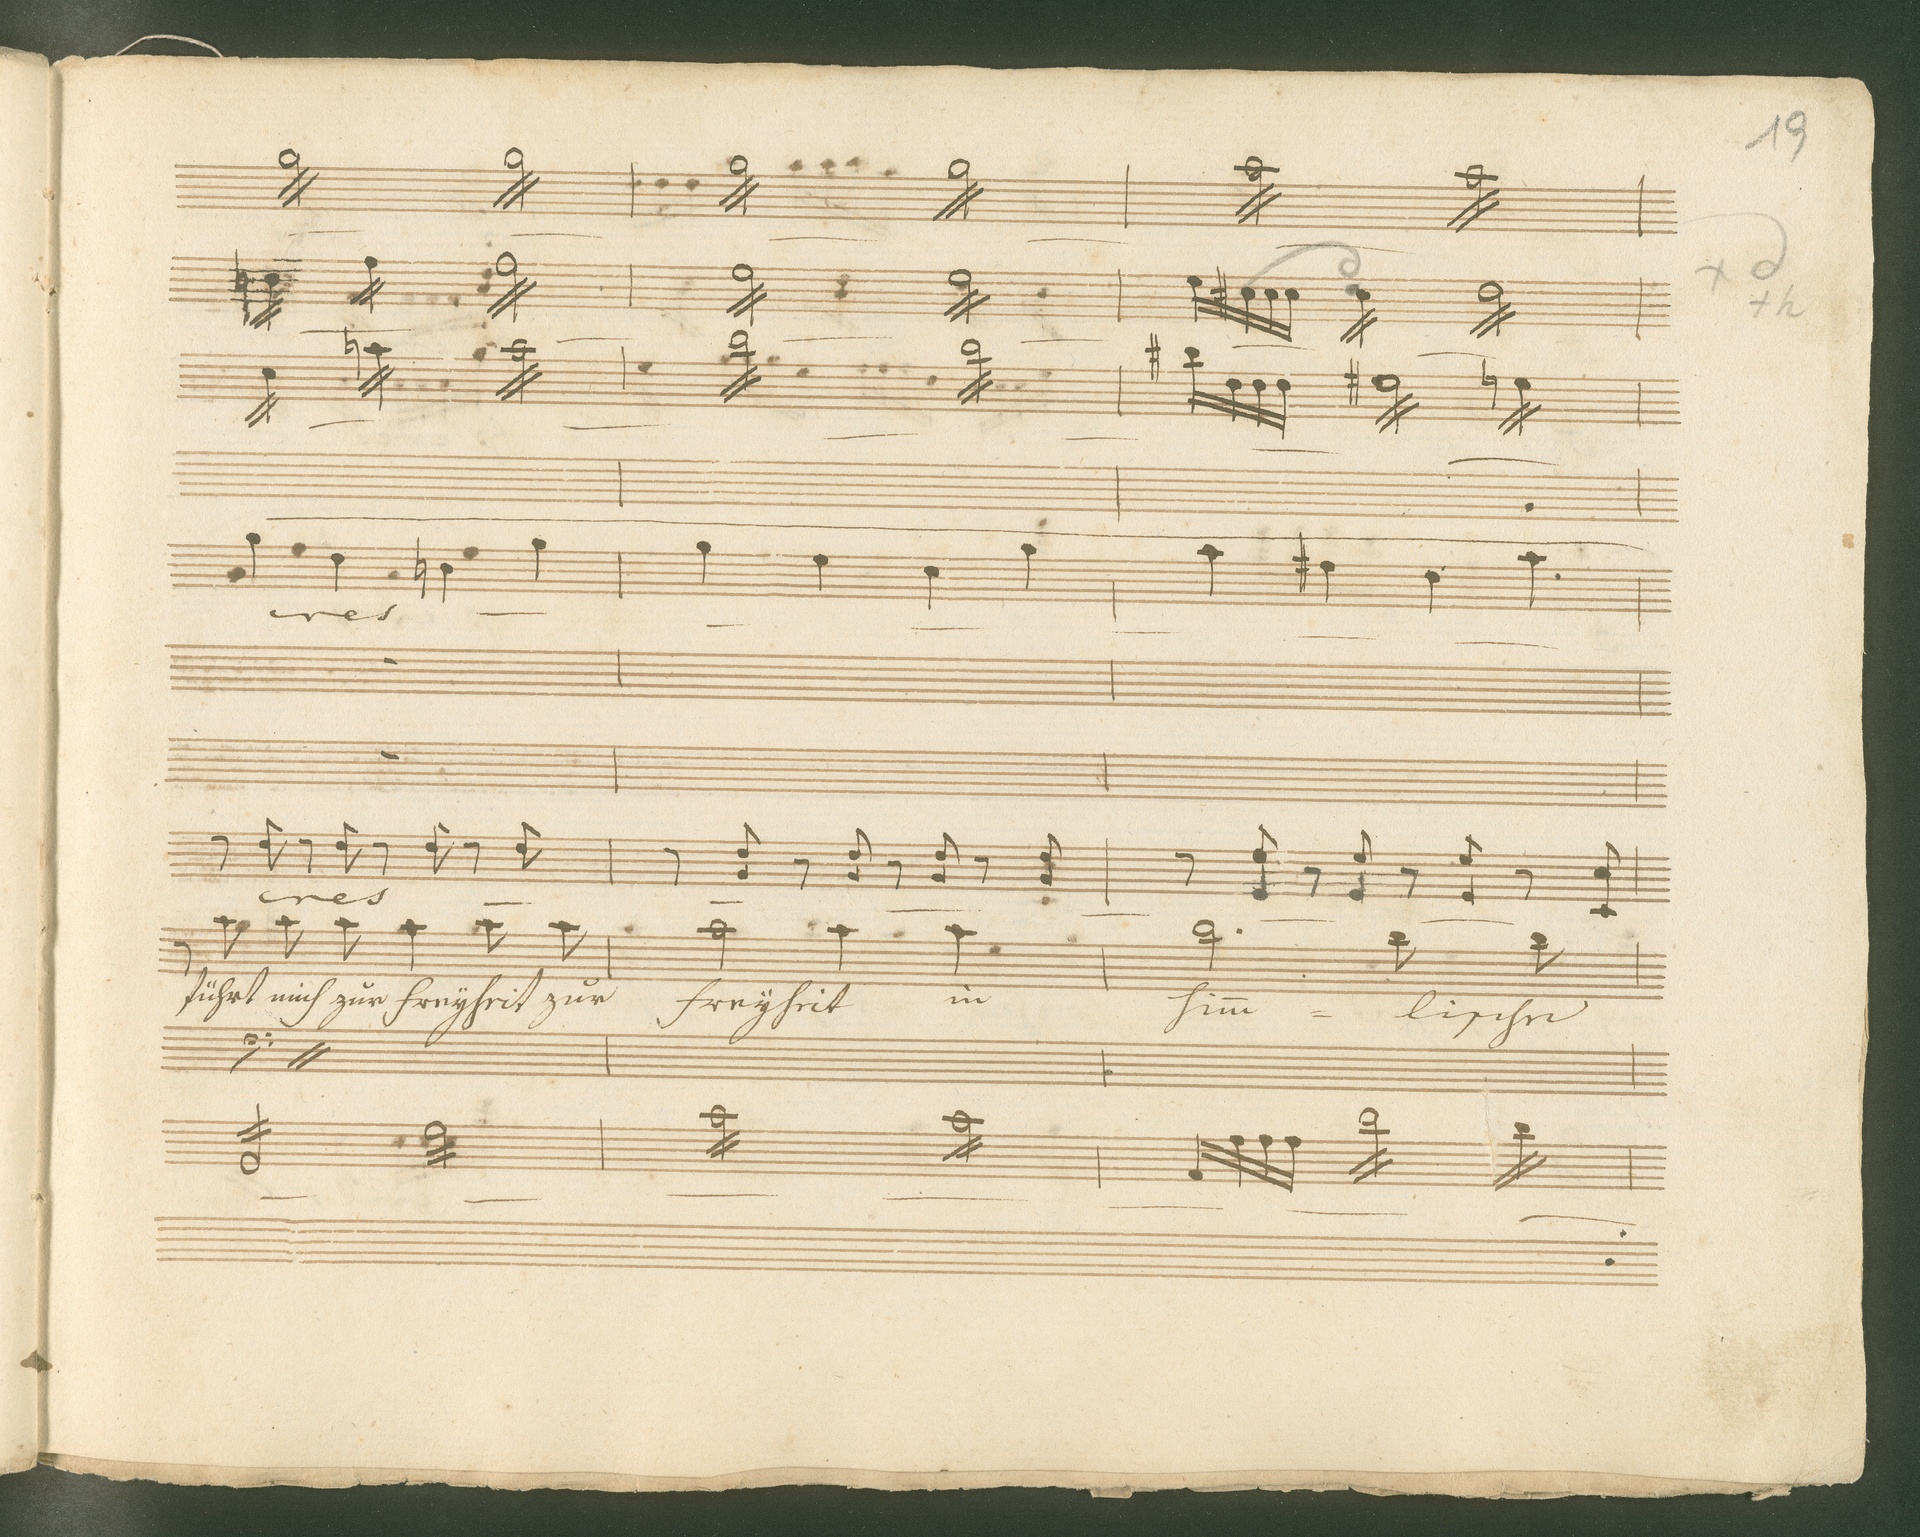 19
cres
cres
führt mich zur freÿheit zur freÿheit in him̅ = lische